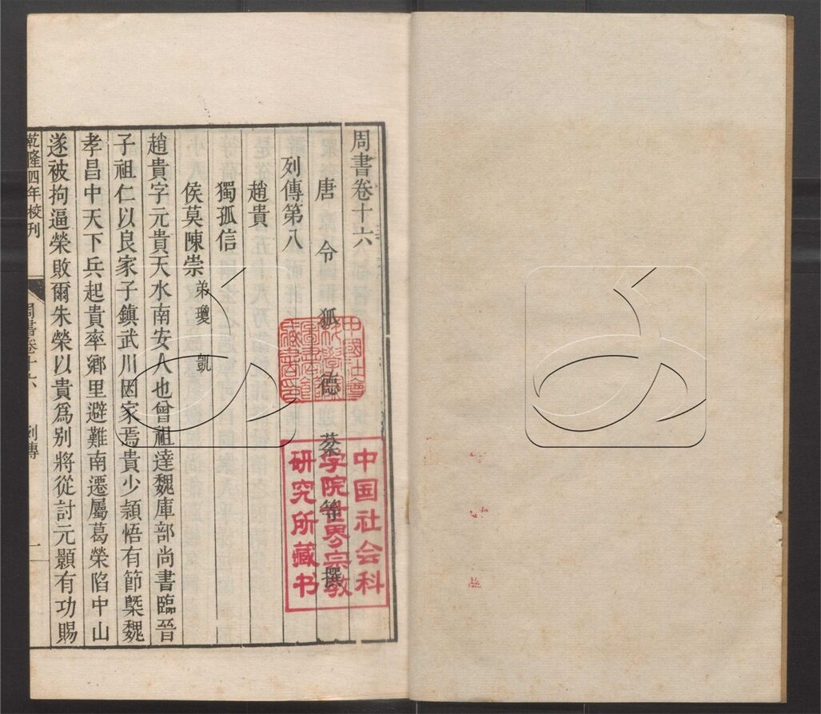 周書卷十六
唐令狐德棻等撰
列傳第八
趙貴
獨孤信
侯莫陳崇 弟瓊 凱
趙貴字元貴天水南安人也曾祖達魏庫部尚書臨晉
子祖仁以良家子鎮武川因家焉貴少頴悟有節槩魏
孝昌中天下兵起貴率鄉里避難南遷屬葛榮陷中山
遂被拘逼榮敗爾朱榮以貴爲別將從討元顥有功賜
乾隆四年校刊
周書卷十六 列傳
一
中国社会科
学院世界宗教
研究所藏书